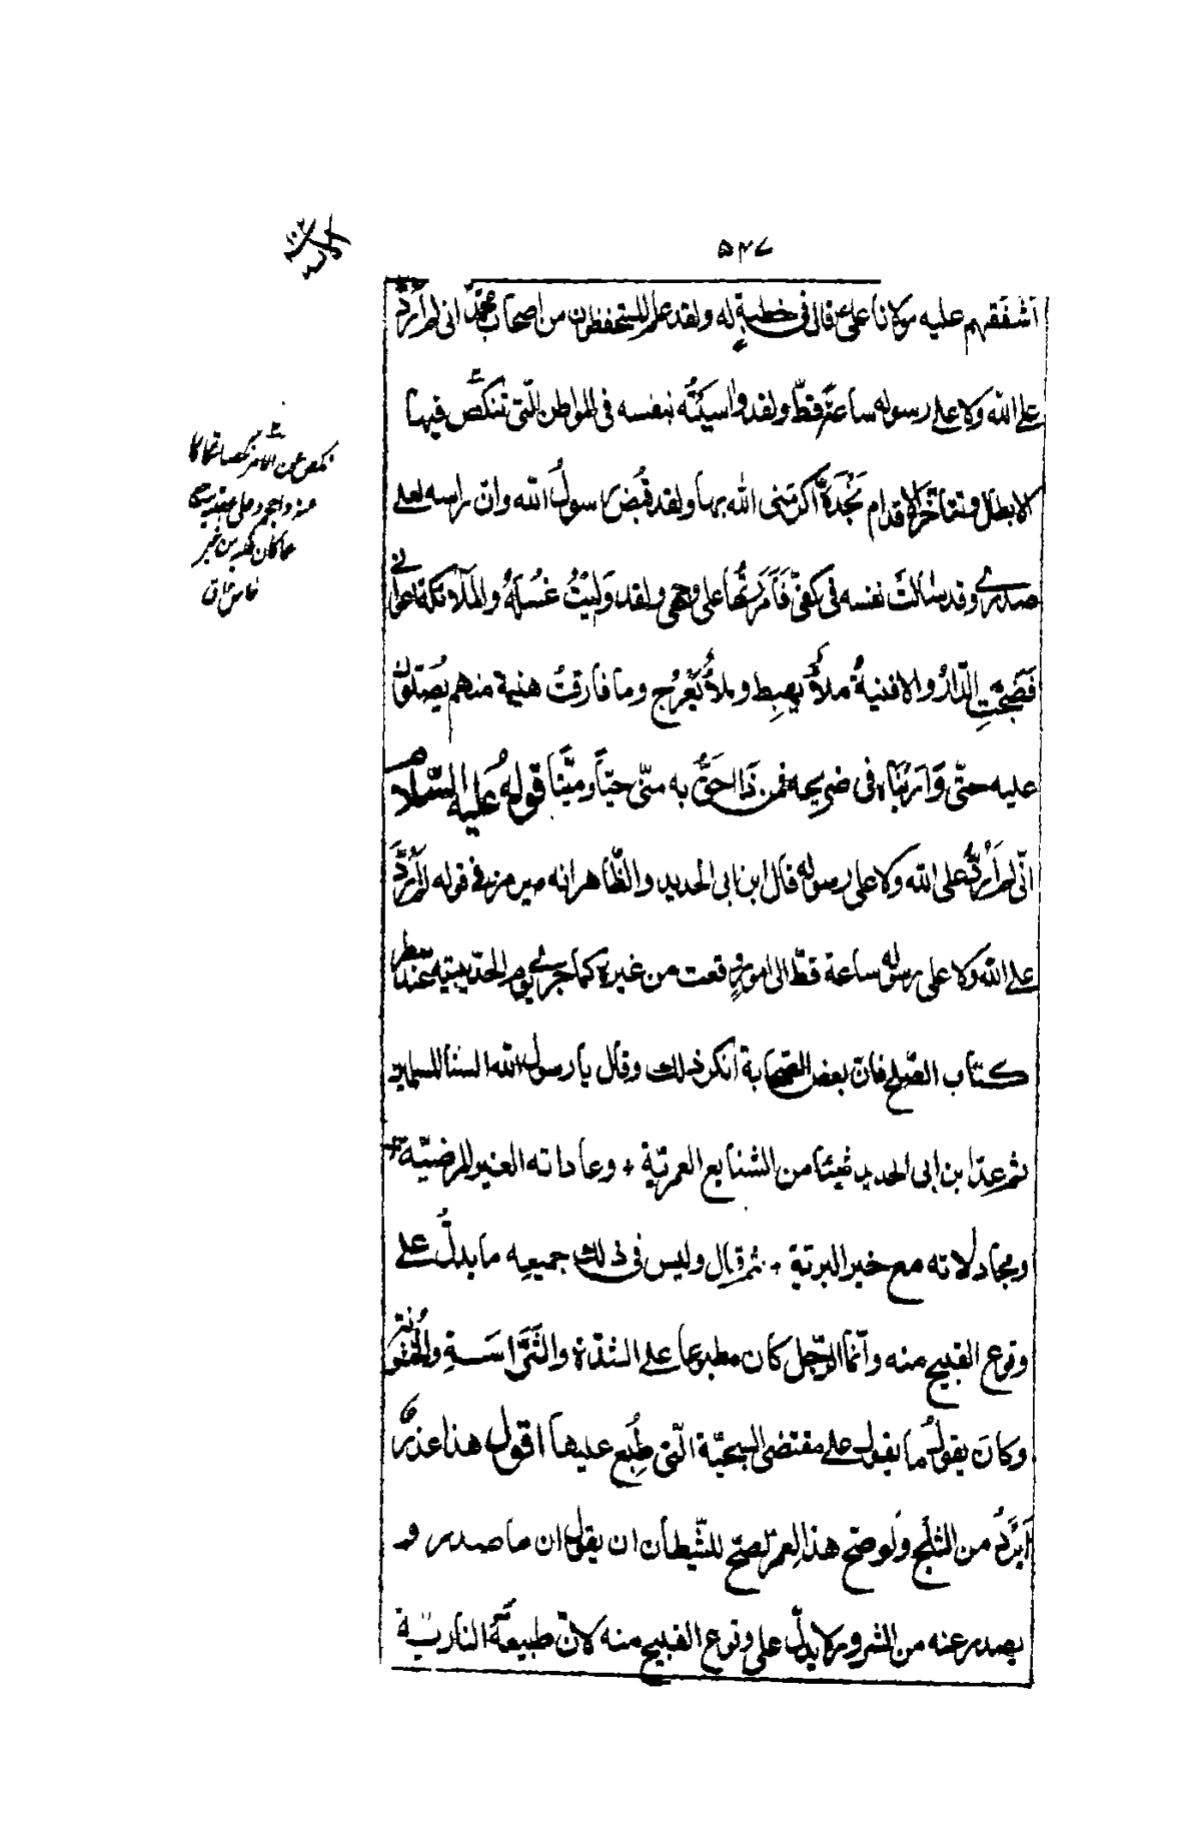 ۵۴۷
اَشفَقَهم عليه مولانا علىّ قال فى خطبةٍ له ولقد علم المستحفظون من اصحاب محمّد انى لم اَرُدَّ
على الله ولا على رسوله ساعةً قطّ ولقد واسيتُه بنفسه فى المواطن الّتى تنكصُ فيها
الابطال وتتأخر الاقدام نَجْدَةً اكرمنى الله بها ولقد قُبِض رسولُ الله وانّ راسه لعلى
صدرى وقد سالَتْ نفسه فى كفّى فَأَمْرَرْتُها على وجهى ولقد وَلِيْتُ غُسلَهُ والملآئكة اعوانى
فَضَجَّتِ الدّارُ والافنيةُ ملأٌ يهبِط وملأٌ يَعْرُج وما فارقتْ هنيمة منهم يُصَلّون
عليه حتّى وَارَيْنَاه فى ضريحه فمن ذَا احَقُّ به منّى حيّاً وميّتًا قولهُ عليه السّلام
انّى لم اَرُدَّ على الله ولا على رسوله قال ابن ابى الحديد والظّاهر انه يرمز فى قوله لم اَرُدَّ
على الله ولا على رسوله ساعة قطّ الى امورٍ وقعت من غيره كما جرى يوم الحديبيّه عند سطر
كتاب الصّلح فانّ بعض الصّحابة انكر ذلك وقال يا رسول الله السنا المسلمين
ثم عدّ ابن ابى الحديد شيئا من الشنايع العمريّة + وعاداته الغير المرضيّة +
ومجادلاته مع خير البريّة + ثم قال وليس فى ذلك جميعِه ما يدلُّ على
وقوع القبيح منه وانّما الرّجل كان مطبوعا على الشدّة والشَّرَاسَةِ والخُشُونة
وكانَ يقولُ ما يقول على مقتضى السجيّة الّتى طُبِع عليها اقول هذا عذرٌ
اَبْرَدُ من الثلج ولو صحّ هذا لِعمر لصحّ للشّيطان ان يقول ان ما صدر و
يصدر عنه من الشرور لا يدلّ على وقوع القبيح منه لانّ طبيعتَه الناريّة
نكص عن الامر